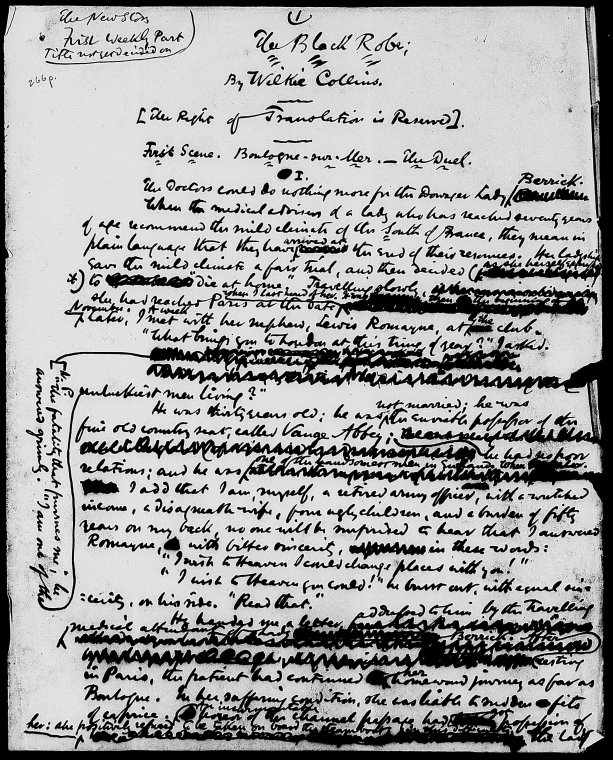 The New Story
First Weekly Part
Title not yet decided on
1
266 p.
The Black Robe;
By Wilkie Collins.
[The Right of Translation is Reserved].
First Scene. Boulogne-sur-Mer. — The Duel.
I.
The Doctors could do nothing more for the Dowager Lady Berrick.
When the medical advisers of a lady who has reached seventy years
of age recommend the mild climate of the South of France, they mean in
plain language that they have arrived at the end of their resources. Her ladyship
gave the mild climate a fair trial, and then decided (as she herself expressed it)
to "die at home". Travelling slowly,
she had reached Paris at the date when I last heard of her. It was then the beginning of
November. A week
later, I met with her nephew, Lewis Romayne, at the club.
"What brings you to London at this time of year?" I asked.
"The fatality that pursues me; he
answered grimly. "I am one of the
unluckiest men living?"
He was thirty years old; he was not married; he was
the enviable possessor of the
fine old country seat, called Vange Abbey; he had no poor
relations; and he was one of the handsomest men in England. When
I add that I am, myself, a retired army officer, with a wretched
income, a disagreeable wife, four ugly children, and a burden of fifty
years on my back, no one will be surprised to hear that I answered
Romayne, with bitter sincerity, in these words:
"I wish to Heaven I could change places with you!"
"I wish to Heaven you could!" he burst out, with equal sin-
=cerity, on his side. "Read that."
He handed me a letter addressed to him by the travelling
medical attendant of Lady Berrick. After
resting
in Paris, the patient had continued her homeward journey as far as
Boulogne. In her suffering condition, she was liable to sudden fits
of caprice. An insurmountable horror of the Channel passage had possession of
her: she positively refused to be taken on board the steamboat. the lady